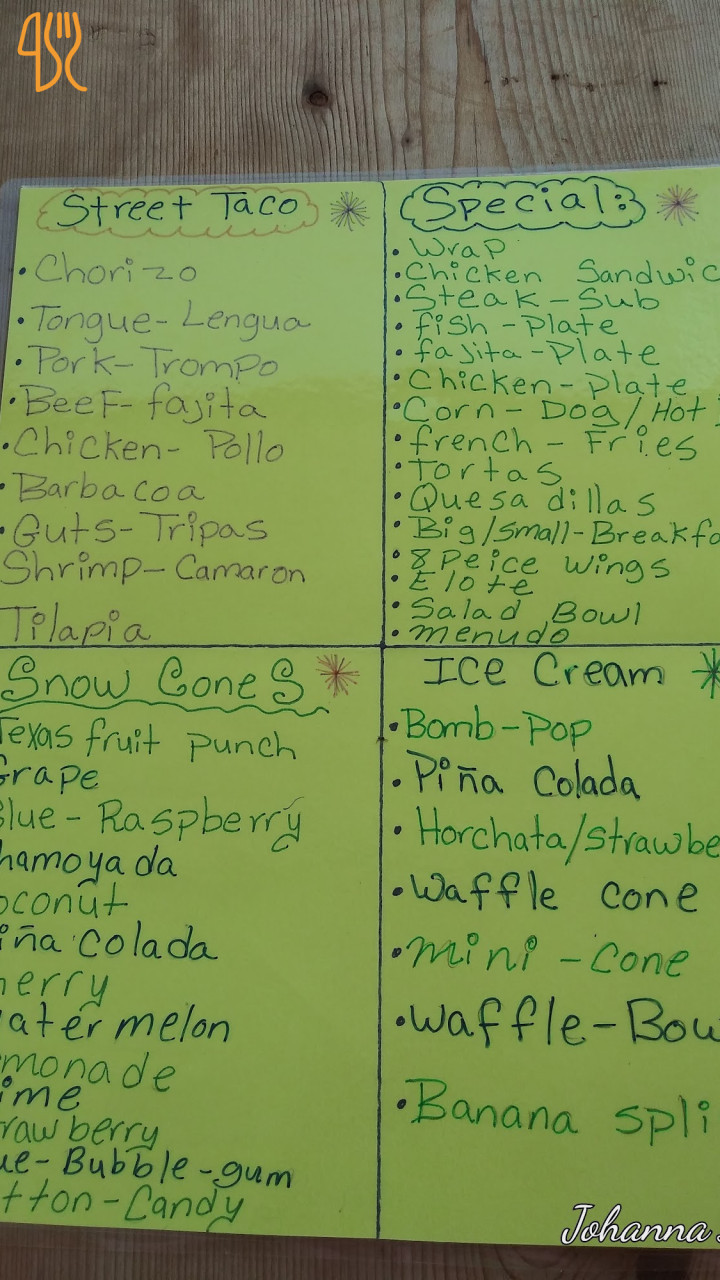 Street Taco
Chorizo
Tongue-Lengua
Pork-Trompo
Beef-fajita
Chicken-Pollo
Barbacoa
Guts-Tripas
Shrimp-Camaron
Tilapia
Special:
Wrap
Chicken Sandwic
Steak-Sub
fish-Plate
fajita-Plate
Chicken-Plate
Corn-Dog/Hot
french-Fries
Tortas
Quesadillas
Big/Small-Breakfa
8 Peice wings
Elote
Salad Bowl
menudo
Snow Cones
Texas fruit punch
Grape
Blue-Raspberry
hamoyada
oconut
iña Colada
herry
ater melon
monade
ime
rawberry
ue-Bubble-gum
tton-Candy
Ice Cream
Bomb-Pop
Piña Colada
Horchata/Strawbe
Waffle cone
mini-cone
Waffle-Bow
Banana spli
Johanna